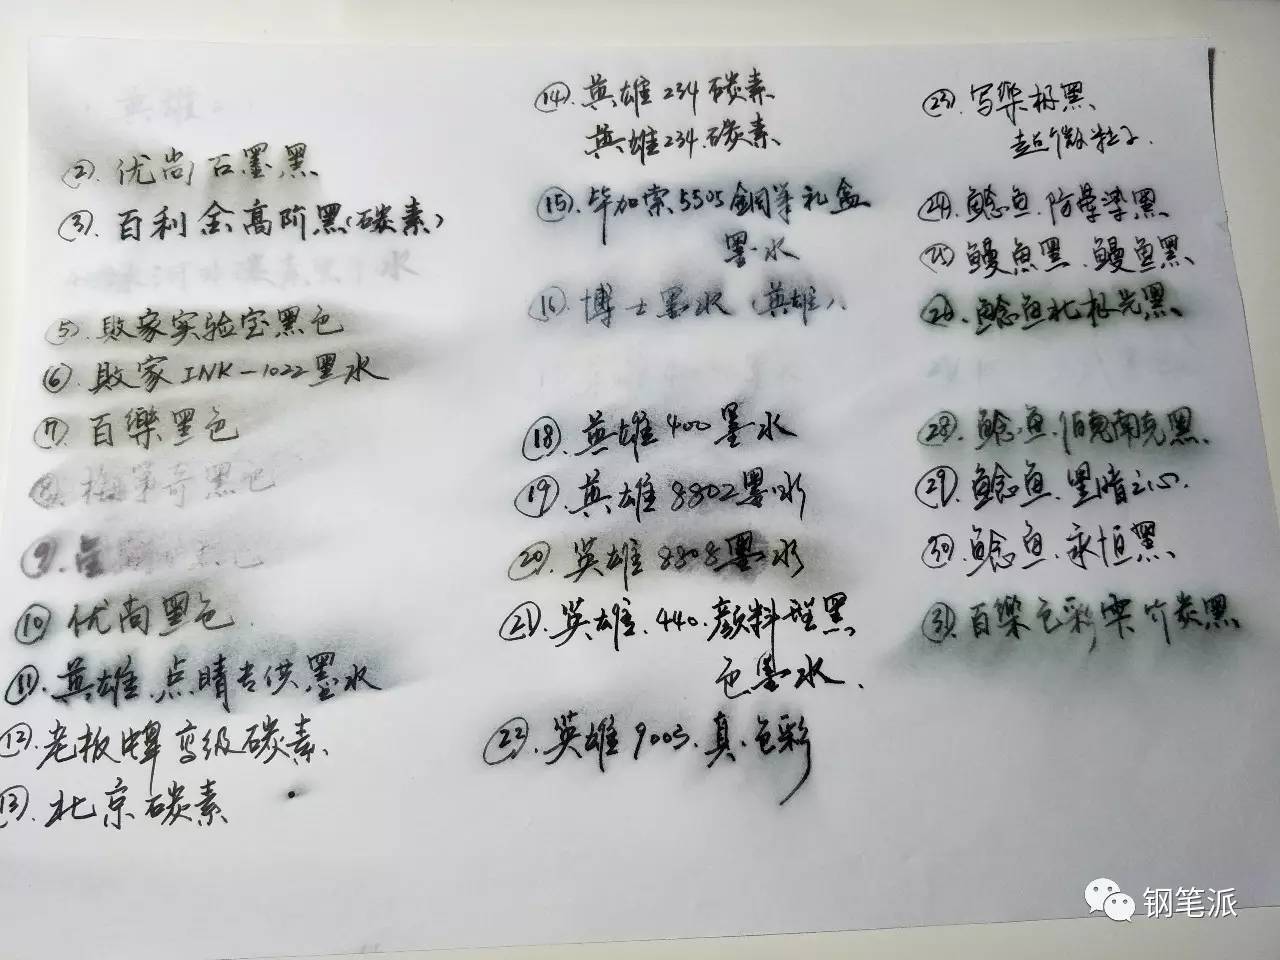 英雄
②.优尚石墨黑
③.百利金高阶黑(碳素)
水
⑤.敗家实验室黑色
⑥.敗家INK-1022墨水
⑦.百樂黑色
⑧.黑色
⑨.黑色
⑩优尚黑色.
⑪.英雄.点睛专供墨水
⑫.老板牌高级碳素.
⑬.北京碳素
⑭.英雄234碳素
英雄234.碳素
⑮.毕加索5505鋼笔礼盒
墨水
⑯.博士墨水(英雄).
⑱.英雄400墨水
⑲.英雄8802墨水
⑳.英雄8808墨水
㉑.英雄.440.颜料型黑
色墨水.
㉒.英雄9003.真.色彩
㉓.写樂极黑
超微粒子.
㉔.鲶鱼.防晕染黑
㉕.鳗魚黑.鳗鱼黑
㉖.鲶鱼北极光黑.
㉘.鲶鱼.伯克南克黑.
㉙.鲶鱼.黑暗之心.
㉚.鲶鱼.永恒黑
㉛百樂色彩雫竹炭黑
钢笔派